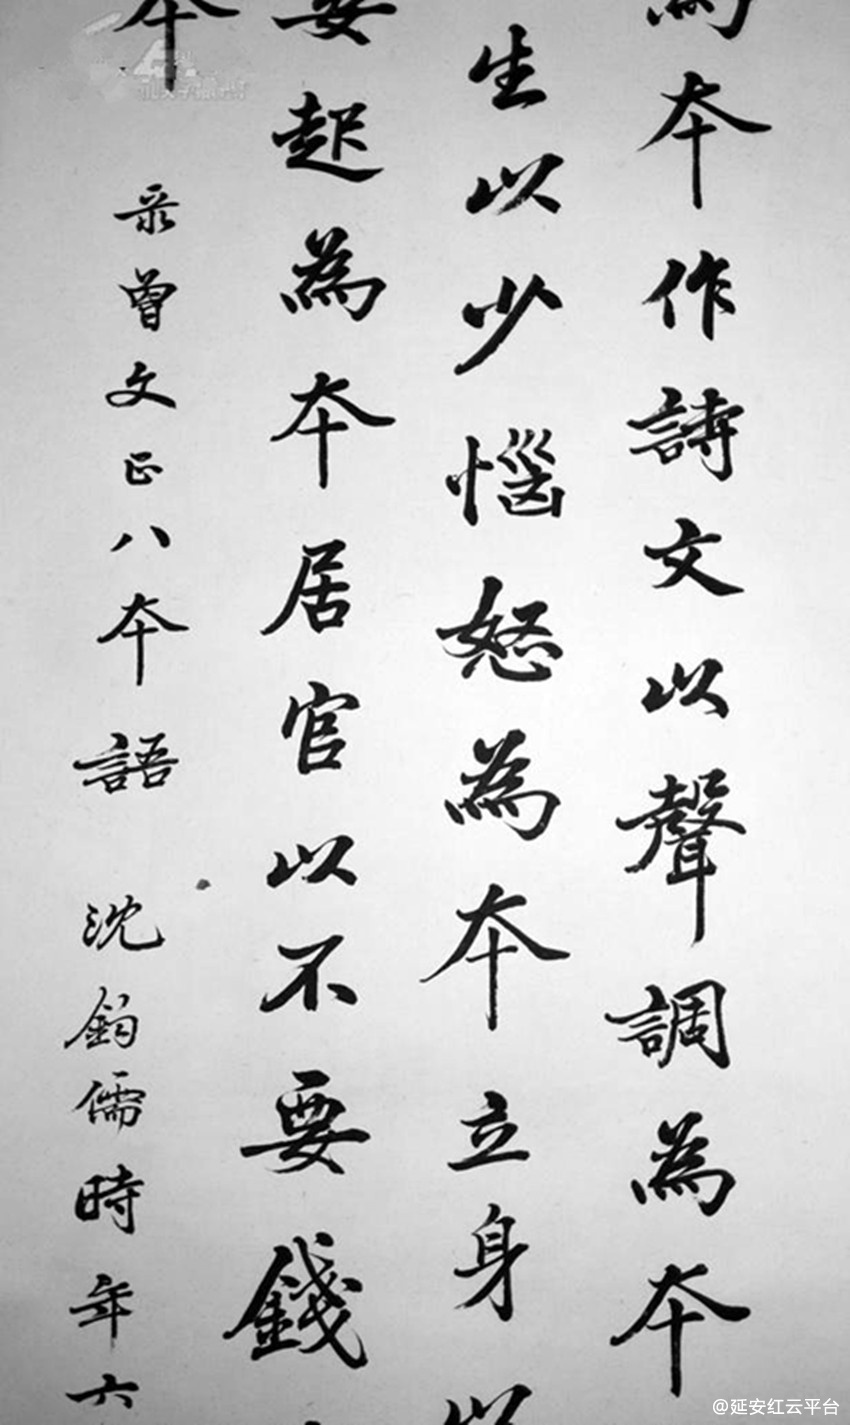 為本作詩文以聲調為本
生以少惱怒為本立身以
妄起為本居官以不要錢
本
录曾文正八本語 沈鈞儒時年六
@延安红云平台